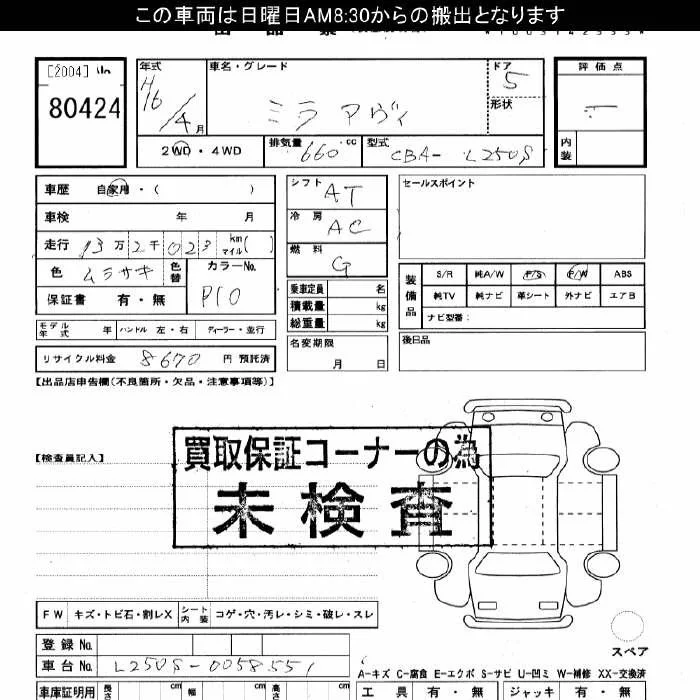 この車両は日曜日AM8:30からの搬出となります
[2004]
80424
年式 車名・グレード ドア 評価点
H16/4月 ミラ アヴィ 5
形状
2WD・4WD 排気量 660 cc 型式 CBA- L250S 内装
車歴 自家用・( ) シフト AT セールスポイント
車検 年 月 冷房 AC
走行 13万2千023 km マイル ( ) 燃料 G
色 ムラサキ 色替 カラーNo. P10
保証書 有・無
乗車定員 名
積載量 kg
総重量 kg
装備品 S/R 純A/W P/S P/W ABS
純TV 純ナビ 革シート 外ナビ エアB
ナビ型番:
モデル年式 年 ハンドル 左・右 ディーラー・並行
名変期限 月 日
後日品
リサイクル料金 8670 円 預託済
【出品店申告欄(不良箇所・欠品・注意事項等)】
【検査員記入】
買取保証コーナーの為
未検査
FW キズ・トビ石・割レX シート内装 コゲ・穴・汚レ・シミ・破レ・スレ
スペア
登録No.
車台No. L250S-0058551
A-キズ C-腐食 E-エクボ S-サビ U-凹ミ W-補修 XX-交換済
車庫証明用 長さ cm 幅 cm 高さ cm 工具 有・無 ジャッキ 有・無